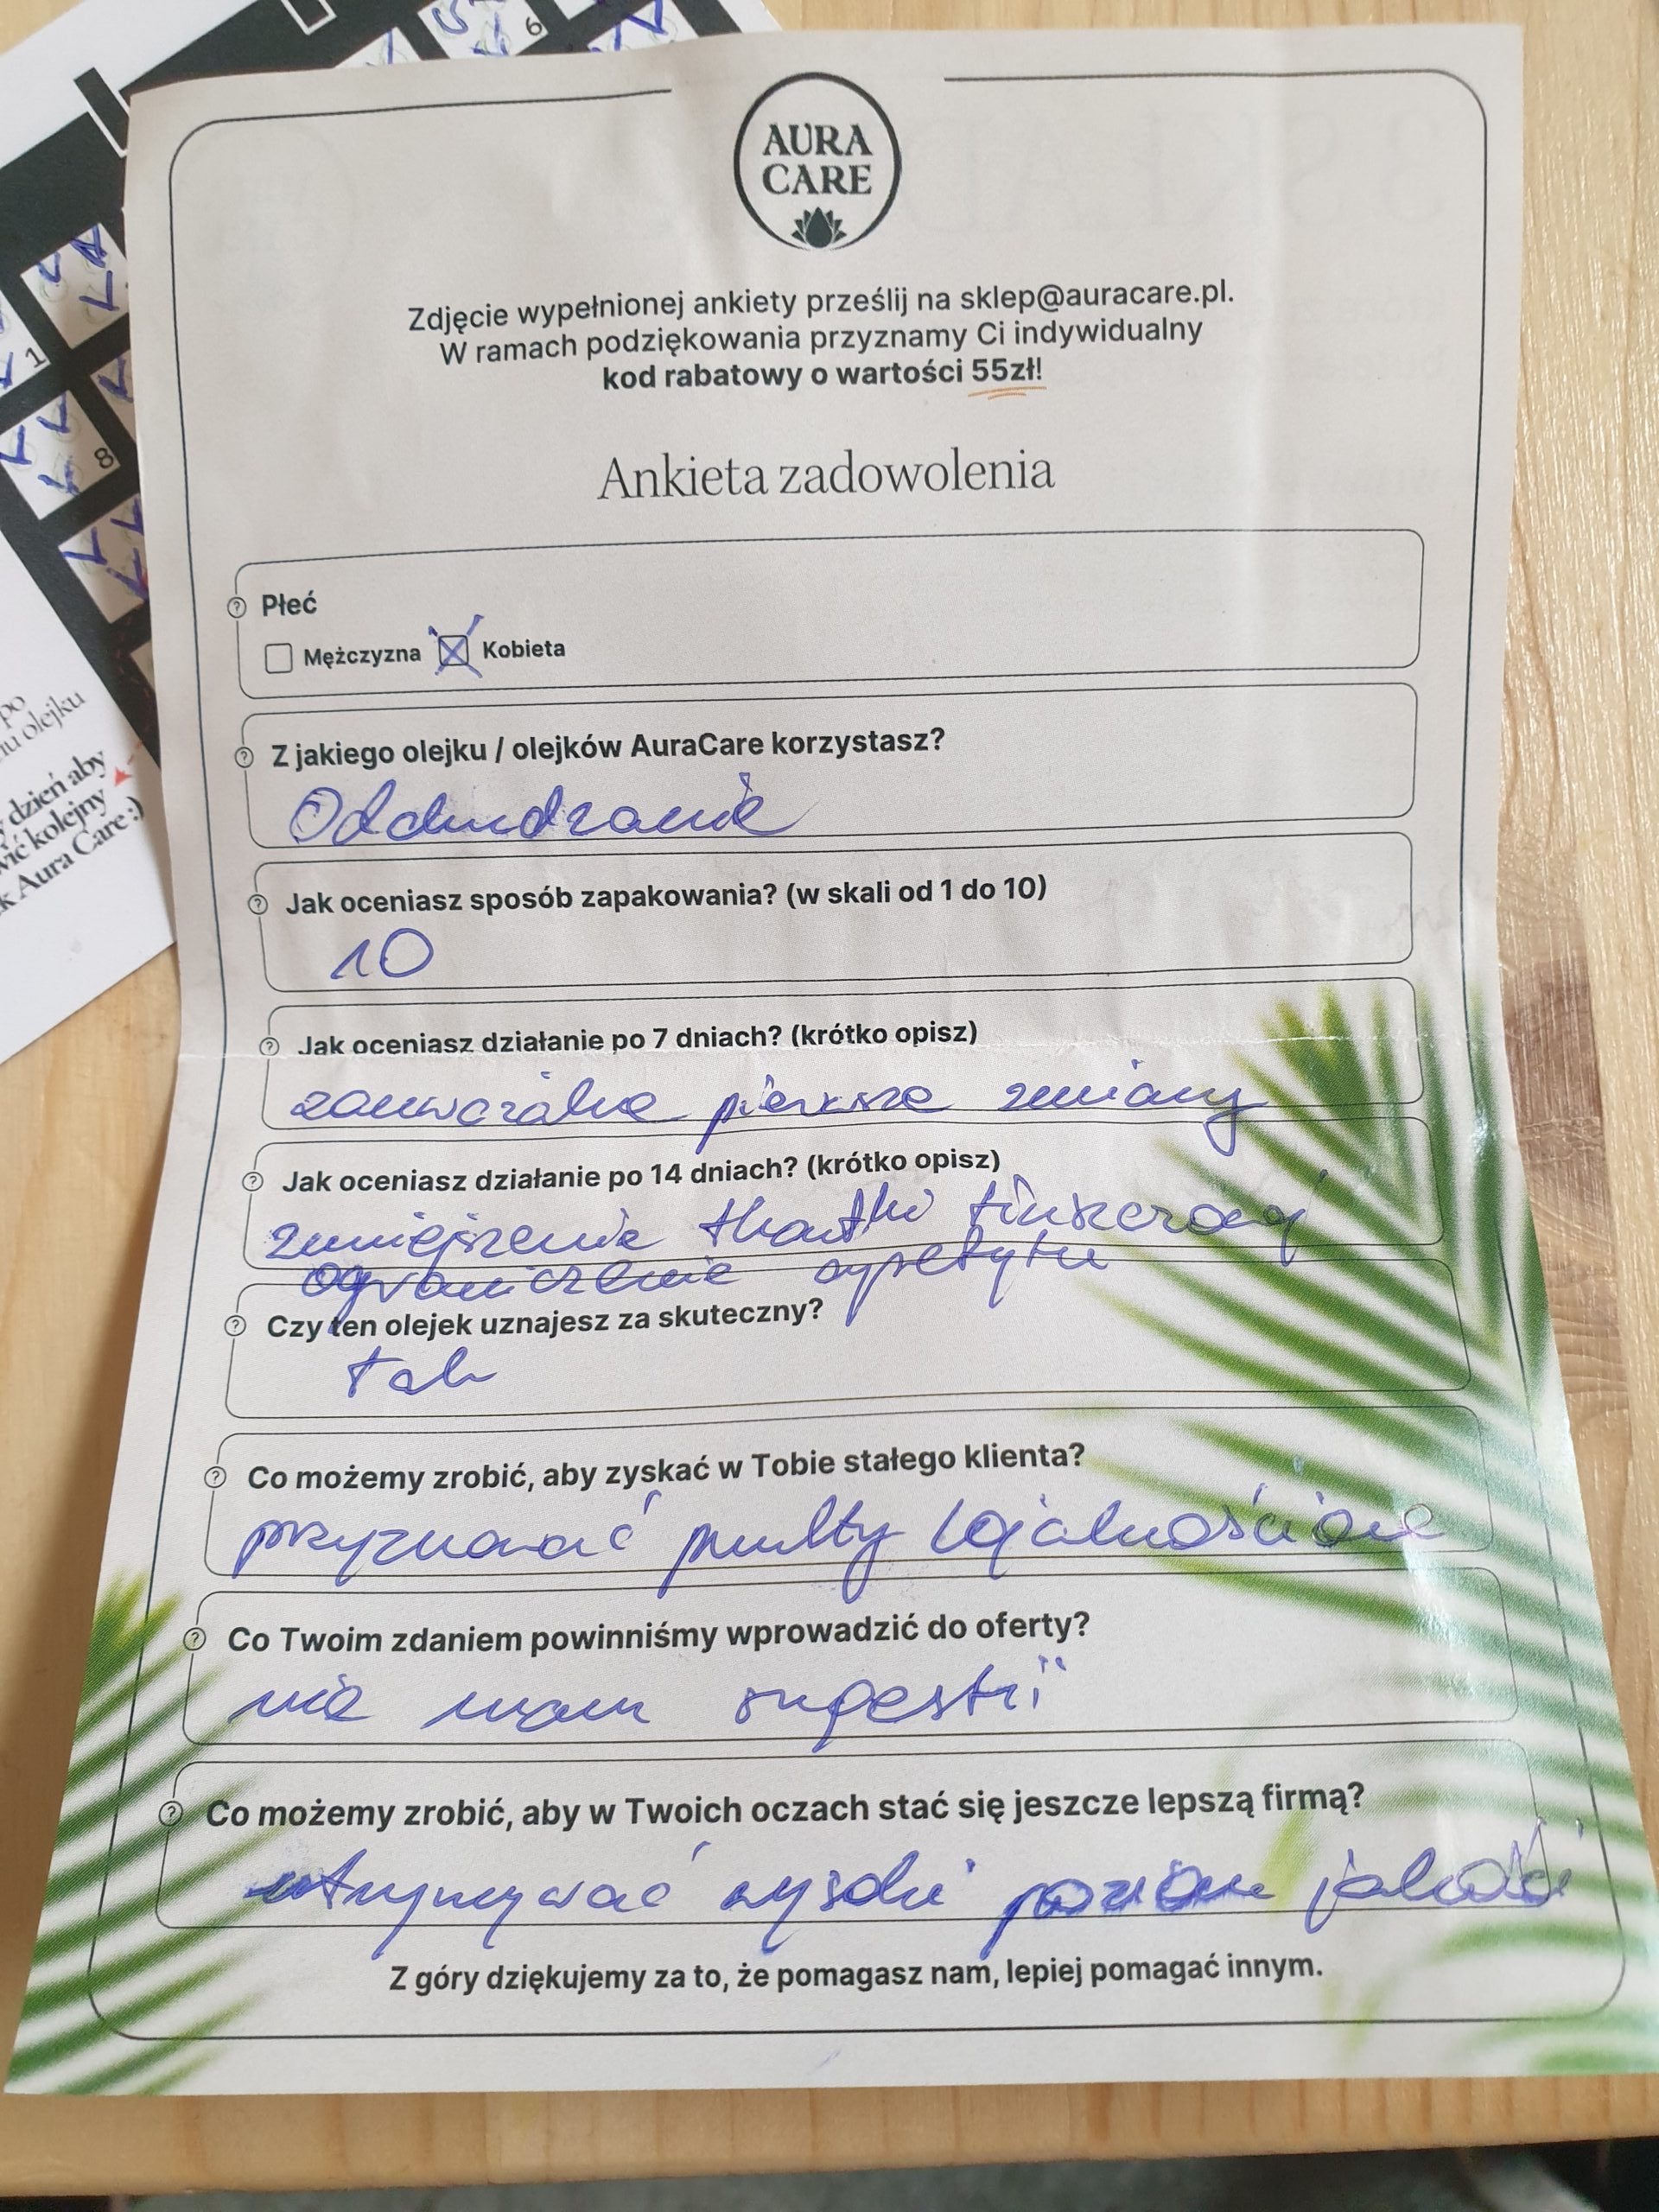 6
1
8
po
olejku
dzień aby
kolejny
Aura Care :)
AURA
CARE
Zdjęcie wypełnionej ankiety prześlij na sklep@auracare.pl.
W ramach podziękowania przyznamy Ci indywidualny
kod rabatowy o wartości 55zł!
Ankieta zadowolenia
Płeć
Mężczyzna Kobieta
Z jakiego olejku / olejków AuraCare korzystasz?
Odchudzanie
Jak oceniasz sposób zapakowania? (w skali od 1 do 10)
10
Jak oceniasz działanie po 7 dniach? (krótko opisz)
zauważalne pierwsze zmiany
Jak oceniasz działanie po 14 dniach? (krótko opisz)
zmniejszenie tkanki tłuszczowej
ograniczenie apetytu
Czy ten olejek uznajesz za skuteczny?
tak
Co możemy zrobić, aby zyskać w Tobie stałego klienta?
przyznawać punkty lojalnościowe
Co Twoim zdaniem powinniśmy wprowadzić do oferty?
nie mam sugestii
Co możemy zrobić, aby w Twoich oczach stać się jeszcze lepszą firmą?
utrzymywać wysoki poziom jakości
Z góry dziękujemy za to, że pomagasz nam, lepiej pomagać innym.